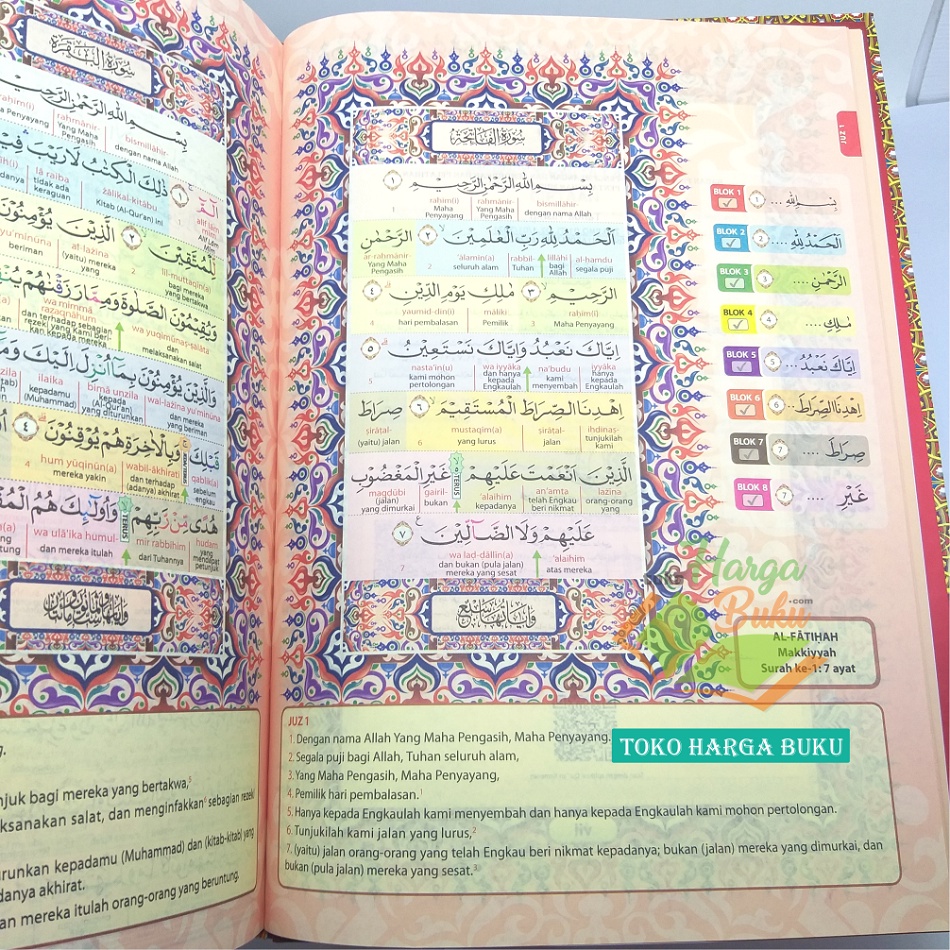 سُورَةُ الْفَاتِحَةِ
بِسْمِ اللّٰهِ الرَّحْمٰنِ الرَّحِيْمِ ١
bismillāhir- rahmānir- rahīm(i) 1
dengan nama Allah Yang Maha Pengasih Maha Penyayang
اَلْحَمْدُ لِلّٰهِ رَبِّ الْعٰلَمِيْنَ ٢ الرَّحْمٰنِ
al-hamdu lillāhi rabbil- 'ālamīn(a) 2 ar-rahmānir-
segala puji bagi Allah Tuhan seluruh alam Yang Maha Pengasih
الرَّحِيْمِ ٣ مٰلِكِ يَوْمِ الدِّيْنِ ٤
rahīm(i) 3 māliki yaumid-dīn(i) 4
Maha Penyayang Pemilik hari pembalasan
اِيَّاكَ نَعْبُدُ وَاِيَّاكَ نَسْتَعِيْنُ ٥
iyyāka na'budu wa iyyāka nasta'īn(u) 5
hanya kepada Engkaulah kami menyembah dan hanya kepada Engkaulah kami mohon pertolongan
اِهْدِنَا الصِّرَاطَ الْمُسْتَقِيْمَ ٦ صِرَاطَ
ihdinaṣ- ṣirāṭal- mustaqīm(a) 6 ṣirāṭal-
tunjukilah kami jalan yang lurus (yaitu) jalan
الَّذِيْنَ اَنْعَمْتَ عَلَيْهِمْ غَيْرِ الْمَغْضُوْبِ
lażīna an'amta 'alaihim gairil- magḍūbi
orang-orang yang telah Engkau beri nikmat kepadanya bukan (jalan) yang dimurkai
TERUS
عَلَيْهِمْ وَلَا الضَّاۤلِّيْنَ ٧
'alaihim wa laḍ-ḍāllīn(a) 7
atas mereka dan bukan (pula jalan) mereka yang sesat
JUZ 1
BLOK 1 بِسْمِ اللّٰهِ .... ١
BLOK 2 اَلْحَمْدُ لِلّٰهِ .... ٢
BLOK 3 الرَّحْمٰنِ .... ٣
BLOK 4 مٰلِكِ .... ٤
BLOK 5 اِيَّاكَ نَعْبُدُ ... ٥
BLOK 6 اِهْدِنَا الصِّرَاطَ ... ٦
BLOK 7 صِرَاطَ .... ٧
BLOK 8 غَيْرِ .... ٧
Harga
Buku.com
AL-FĀTIḤAH
Makkiyyah
Surah ke-1: 7 ayat
TOKO HARGA BUKU
JUZ 1
1. Dengan nama Allah Yang Maha Pengasih, Maha Penyayang.
2. Segala puji bagi Allah, Tuhan seluruh alam,
3. Yang Maha Pengasih, Maha Penyayang,
4. Pemilik hari pembalasan.¹
5. Hanya kepada Engkaulah kami menyembah dan hanya kepada Engkaulah kami mohon pertolongan.
6. Tunjukilah kami jalan yang lurus,²
7. (yaitu) jalan orang-orang yang telah Engkau beri nikmat kepadanya; bukan (jalan) mereka yang dimurkai, dan
bukan (pula jalan) mereka yang sesat.³
سُورَةُ الْبَقَرَةِ
بِسْمِ اللّٰهِ الرَّحْمٰنِ الرَّحِيْمِ
bismillāhir- rahmānir- rahīm(i)
dengan nama Allah Yang Maha Pengasih
الۤمّۤ ١ ذٰلِكَ الْكِتٰبُ لَا رَيْبَ
żālikal-kitābu lā raiba
Kitab (Al-Qur'an) ini tidak ada keraguan
لِلْمُتَّقِيْنَ ٢ الَّذِيْنَ يُؤْمِنُوْنَ
lil-muttaqīn(a) al-lażīna yu'minūna
bagi mereka yang bertakwa (yaitu) mereka yang beriman
وَيُقِيْمُوْنَ الصَّلٰوةَ وَمِمَّا رَزَقْنٰهُمْ
wa yuqīmūnaṣ-ṣalāta wa mimmā razaqnāhum
dan melaksanakan salat dan terhadap sebagian rezeki yang Kami berikan kepada mereka
وَالَّذِيْنَ يُؤْمِنُوْنَ بِمَآ اُنْزِلَ اِلَيْكَ
wal-lażīna yu'minūna bimā unzila ilaika
dan mereka yang beriman kepada (Al-Qur'an) yang diturunkan kepadamu (Muhammad)
قَبْلِكَ وَبِالْاٰخِرَةِ هُمْ يُوْقِنُوْنَ ٤
qablik(a) wabil-ākhirati hum yūqinūn(a) 4
sebelum engkau dan terhadap (adanya) akhirat mereka yakin
هُدًى مِّنْ رَّبِّهِمْ وَاُولٰۤىِٕكَ هُمُ
hudam mir rabbihim wa ulā'ika humul-
yang mendapat petunjuk dari Tuhannya dan mereka itulah
njuk bagi mereka yang bertakwa,⁵
aksanakan salat, dan menginfakkan⁶ sebagian rezeki
urunkan kepadamu (Muhammad) dan (kitab-kitab) yang
danya akhirat.
an mereka itulah orang-orang yang beruntung.